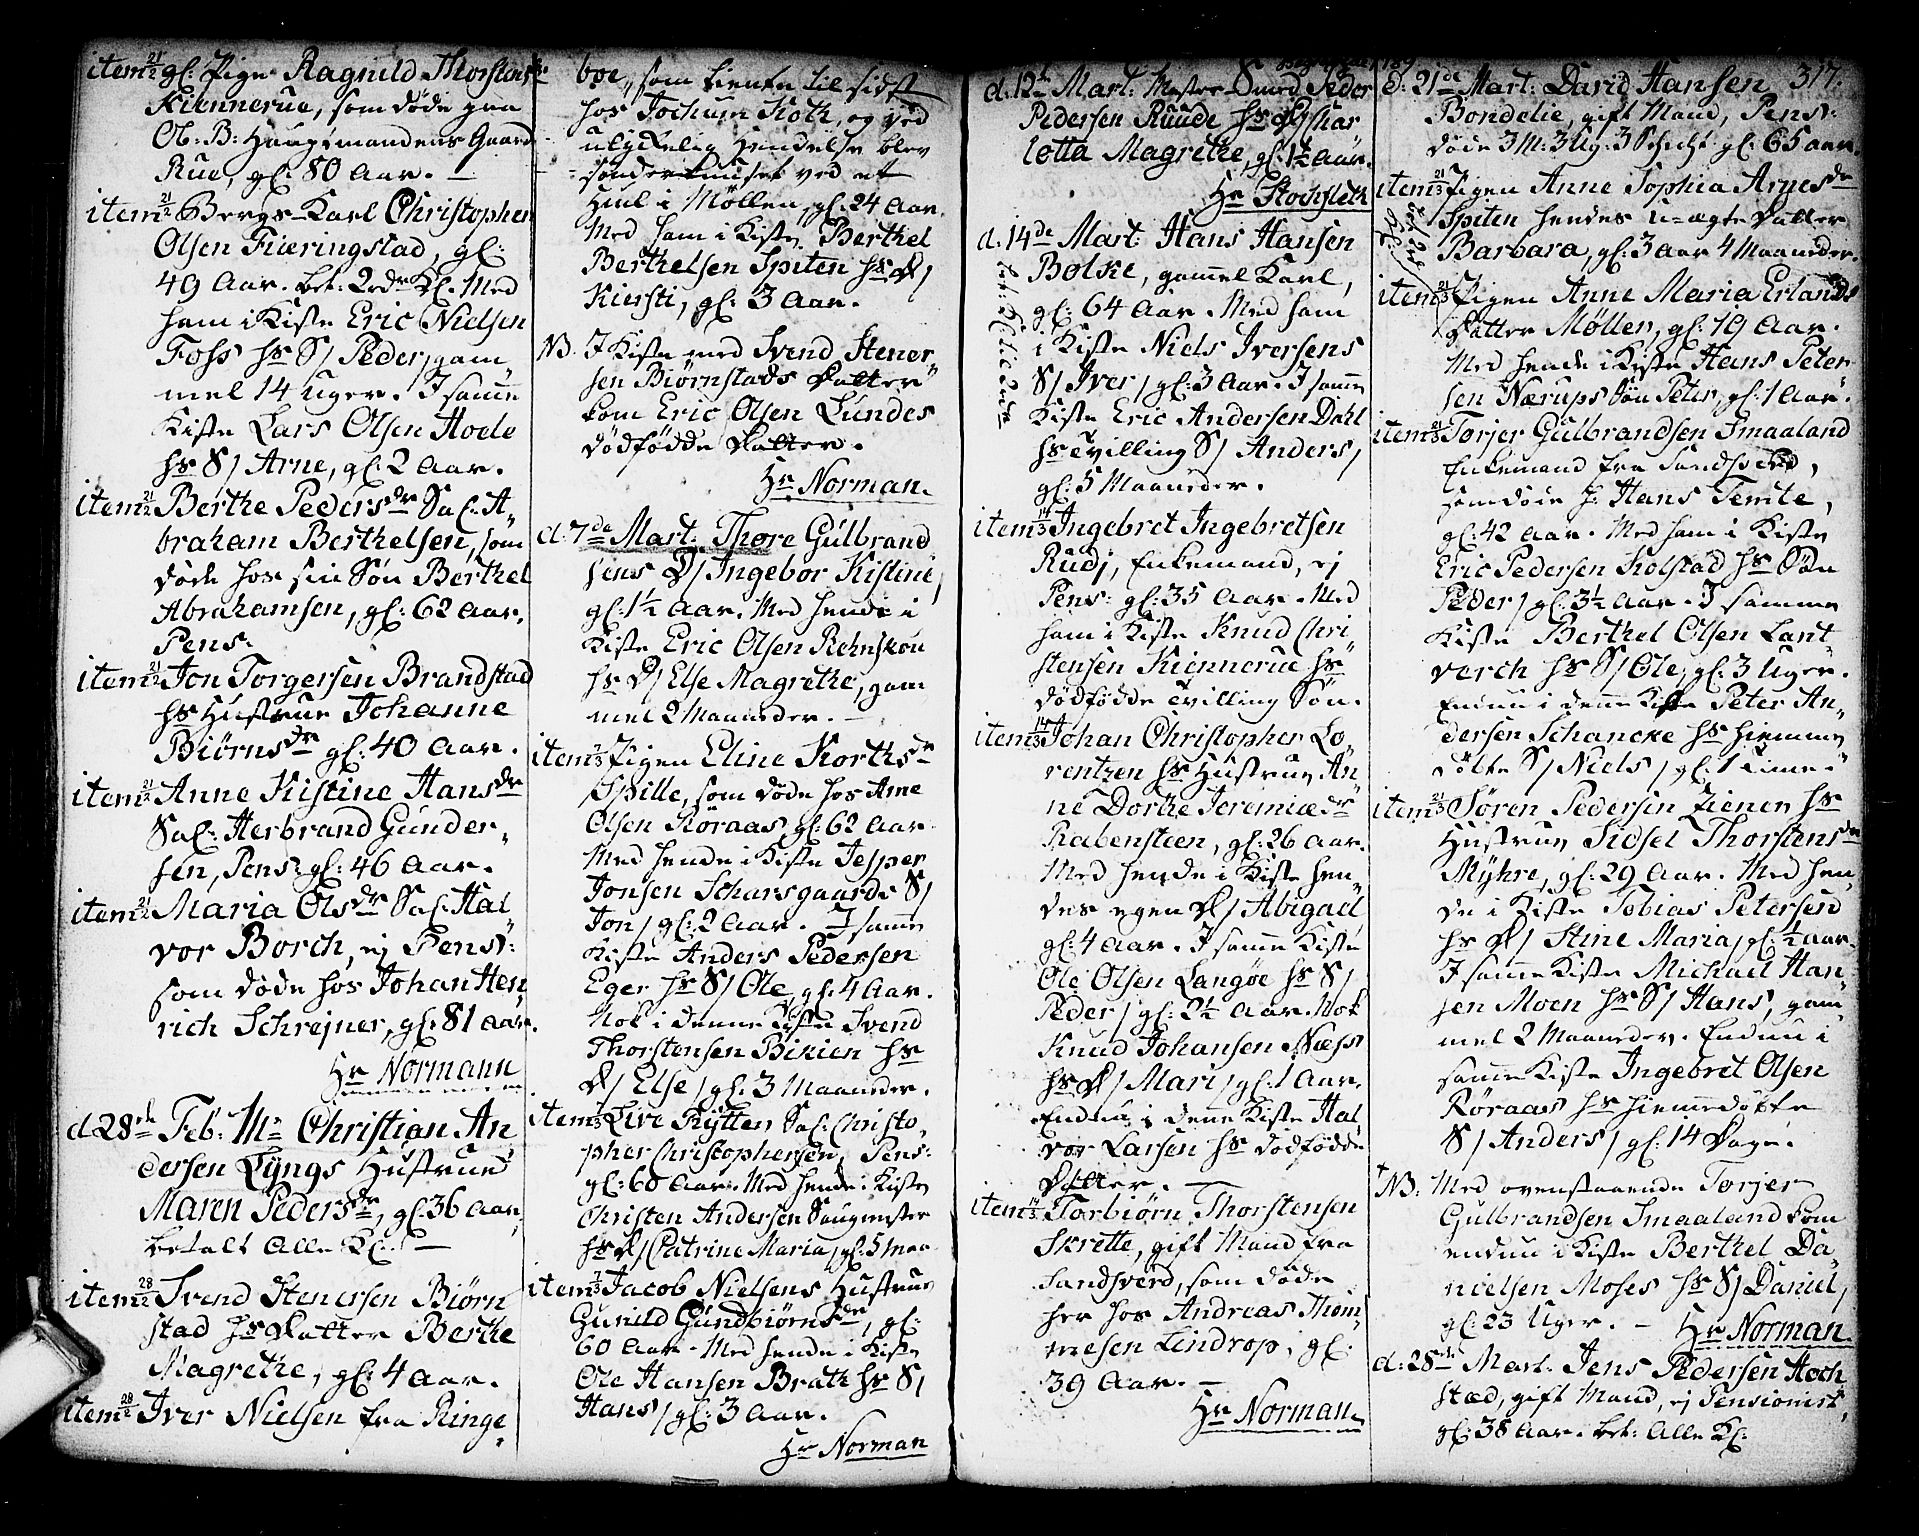 item 21/2 gl: Pige Ragnild Thorstens dr
Kiennerue, som døde paa
Ob: B: Hauptmandens Gaard
Rue, gl: 80 Aar. —
item 21/2 Bergs-Karl Christopher
Olsen Fieringstad, gl:
49 Aar. bet: 2de Kl. Med
ham i Kiste Eric Nielsen
Foss hs S/ Peder, gam
mel 14 uger. I samme
Kiste Lars Olsen Hoele
hs S/ Arne, gl: 2 Aar.
item 21/2 Berthe Peders dr Sal: A„
braham Berthelsen, som
døde hos sin Søn Berthel
Abrahamsen, gl: 62 Aar.
Pens:
item 21/2 Jon Torgersen Brandstad
hs Hustrue Johanne
Biørns dr gl: 40 Aar.
item 21/2 Anne Kistine Hans dr
Sal: Herbrand Gunder„
sen, Pens: gl: 46 Aar.
item 21/2 Maria Ols dr Sal: Hal„
vor Borch, ej Pens:
som døde hos Johan Hen„
rich Schrejner, gl: 81 Aar.
Hr Normann
d. 28de Feb: Mr Christian An„
dersen Lyngs Hustrue
Maren Peders dr, gl: 36 Aar,
betalt Alle Kl: —
item 28/2 Svend Stenersen Biørn
stad hs Datter Berthe
Magrethe, gl: 4 Aar.
item 28/2 Iver Nielsen fra Ringe„
boe, som tiente til sidst
hos Jochum Koth, og ved
ulykkelig Hendelse blev
sønderknuset ved et
Huul i Møllen, gl: 24 Aar.
Med ham i Kiste Berthel
Berthelsen Spiten hs D/
Kiersti, gl: 3 Aar.
NB. I Kiste med Svend Stener„
sen Biørnstads Datter
kom Eric Olsen Lundes
dødfødde Datter.
Hr Norman.
d: 7de Mart: Thore Gulbrand
sens D/ Ingebor Kistine,
gl: 1½ Aar. Med hende i
Kiste Eric Olsen Rehnskou
hs D/ Else Magrethe, gam
mel 2 Maaneder. —
item 7/3 Pigen Eline Korths dr
Spille, som døde hos Arne
Olsen Røraas, gl: 62 Aar.
Med hende i Kiste Jesper
Jonsen Scharsgaards S/
Jon, gl: 2 Aar. I samme
Kiste Anders Pedersen
Eger hs S/ Ole, gl: 4 Aar.
Nok i denne Kiste Svend
Thorstensen Bikien hs
D/ Else, gl: 3 Maaneder.
item 7/3 Live Rytter Sal: Christo„
pher Christophersen, Pens:
gl: 60 Aar. Med hende i Kiste
Christen Andersen Saugmester
hs D/ Catrine Maria, gl: 5 maa
item 7/3 Jacob Nielsens Hustrue
Gunild Gundbiørns dr, gl:
60 Aar. Med hende i Kiste
Ole Hansen Brath hs S/
Hans, gl: 3 Aar.
Hr Norman
d. 12te Mart: Mester Peder
Pedersen Ruude hs D/ Char
lotta Magrethe, gl: 1½ Aar.
Hr Stochfleth
d. 14de Mart: Hans Hansen
Bolke, gammel Karl,
gl: 64 Aar. Med ham
i Kiste Niels Iversens
S/ Iver, gl: 3 Aar. I samme
Kiste Eric Andersen Dahl
hs tvilling S/ Anders,
gl: 5 Maaneder.
item 14/3 Ingebret Ingebretsen
Rudj, Enkemand, ej
Pens: gl: 35 Aar. Med
ham i Kiste Knud Chri
stensen Kiennerue hs
dødfødde tvilling Søn.
item 14/3 Johan Christopher Lo„
rentzen hs Hustrue An„
ne Dorthe Jeremiæ dr
Rabensteen, gl: 26 Aar.
Med hende i Kiste hen„
des egen D/ Abigael
gl: 4 Aar. I samme Kiste
Ole Olsen Langøe hs S/
Peder, gl: 2½ Aar. Nok
Knud Johansen Næss
hs D/ Mari, gl: 1 Aar.
Endnu i denne Kiste Hal
vor Larsen hs dødfødde
Datter. —
item 14/3 Torbiørn Thorstensen
Skrette, gift Mand fra
Sandsverd, som døde
her hos Andreas Thom„
mesen Lindrop, gl:
39 Aar. —
Hr Norman
317.
d: 21de Mart: David Hansen
Bondelie, gift Mand, Pens:
døde 3 M: 3 Ug: 3 Schicht gl: 65 Aar.
item 21/3 Pigen Anne Sophia Arnes dr
Spiten hendes u-ægte Datter
Barbara, gl: 3 Aar 4 Maaneder.
item 21/3 Pigen Anne Maria Erlands
Datter Møller, gl: 19 Aar.
Med hende i Kiste Hans Peter
sen Nærups Søn Peter, gl: 1 Aar.
item 21/3 Torjer Gulbrandsen Smaaland
Enkemand fra Sandsverd,
som døde h: Hans Temte,
gl: 42 Aar. Med ham i Kiste
Eric Pedersen Kolstad hs Søn
Peder, gl: 3½ Aar. I samme
Kiste Berthel Olsen Lant
verch hs S/ Ole, gl: 3 Uger.
Endnu i denne Kiste Peter An„
dersen Schancke hs hiemme
døbte S/ Niels, gl: 1 Time.
item 21/3 Søren Pedersen Zienen hs
Hustrue Sidsel Thorstens dr
Myhre, gl: 29 Aar. Med hen„
de i Kiste Tobias Petersen
hs D/ Stine Maria, gl: ½ Aar.
I samme Kiste Michael Han„
sen Moen hs S/ Hans, gam„
mel 2 Maaneder. Endnu i
samme Kiste Ingebret Olsen
Røraas hs hiemmedøbte
S/ Anders, gl: 14 Dage.
NB: Med ovenstaaende Torjer
Gulbrandsen Smaaland kom
endnu i Kiste Berthel Da„
nielsen Moses hs S/ Daniel,
gl: 23 Uger. —
Hr Norman.
d: 28de Mart: Jens Pedersen Hoch
stæd, gift Mand, ej Pensionist
gl: 38 Aar. bet: Alle Kl: